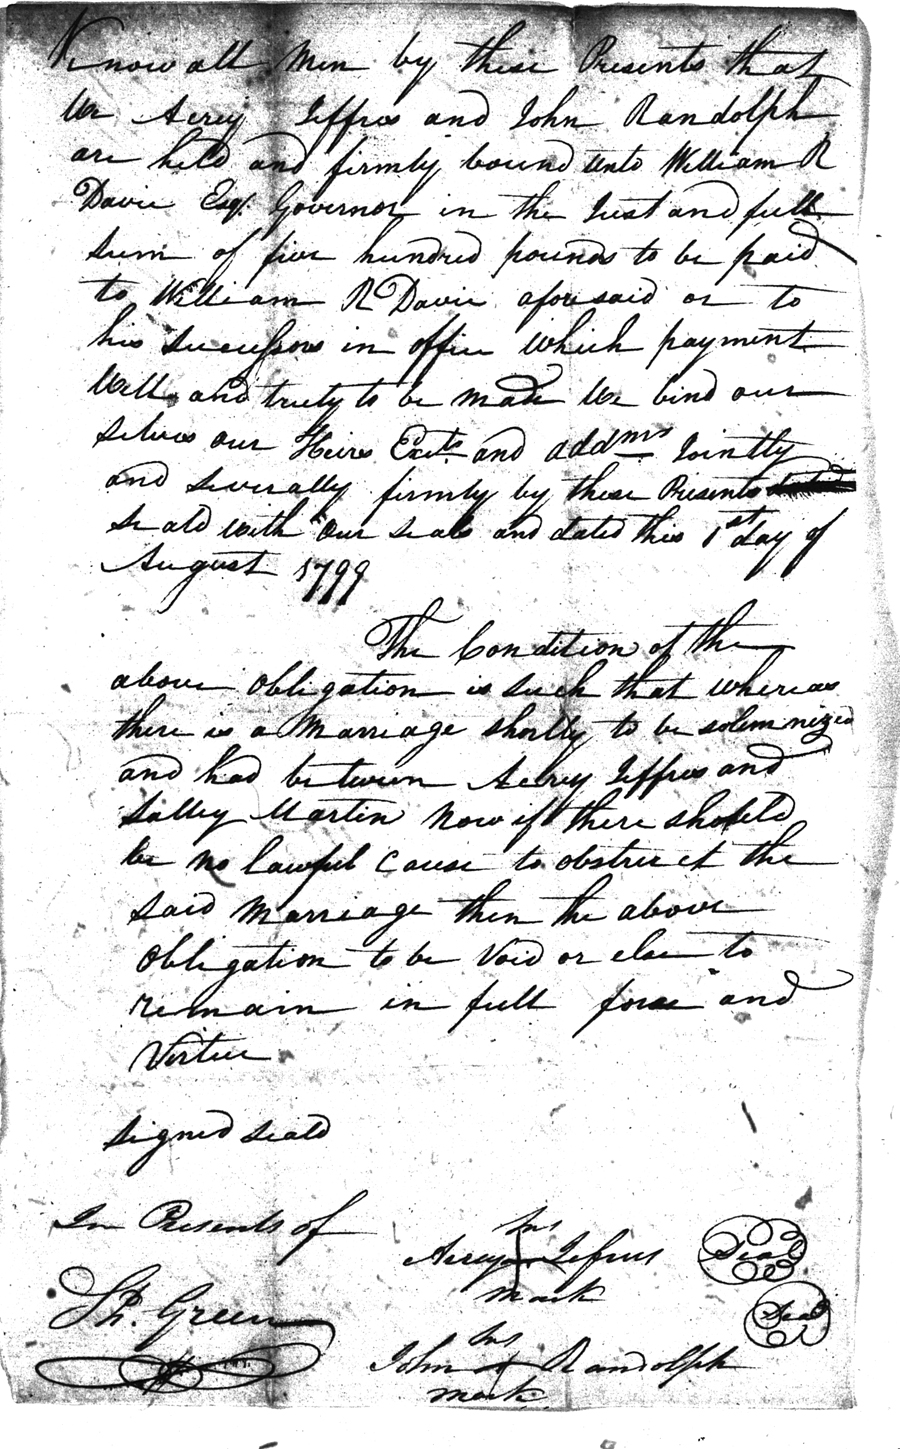 Know all Men by these Presents that
We Acrey Jeffres and John Randolph
are held and firmly bound unto William R
Davie Esqr. Governor in the Just and full
Sum of five hundred pounds to be paid
to William R Davie aforesaid or to
his Successors in office which payment
Well and truly to be made We bind our
selves our Heirs Exets and addmrs Jointly
and Severally firmly by these Presents
Seald with our seals and dated this 1st day of
August 1799
The Condition of the
above obligation is such that whereas
there is a Marriage shortly to be solemnized
and had between Acrey Jeffres and
Salley Martin Now if there should
be no lawful Cause to obstruct the
said Marriage then the above
obligation to be Void or else to
remain in full force and
Virtue
Signed Seald
In Presents of
Sh. Green
his
Acrey Jefres Seal
mark
his
John + Randolph Seal
mark